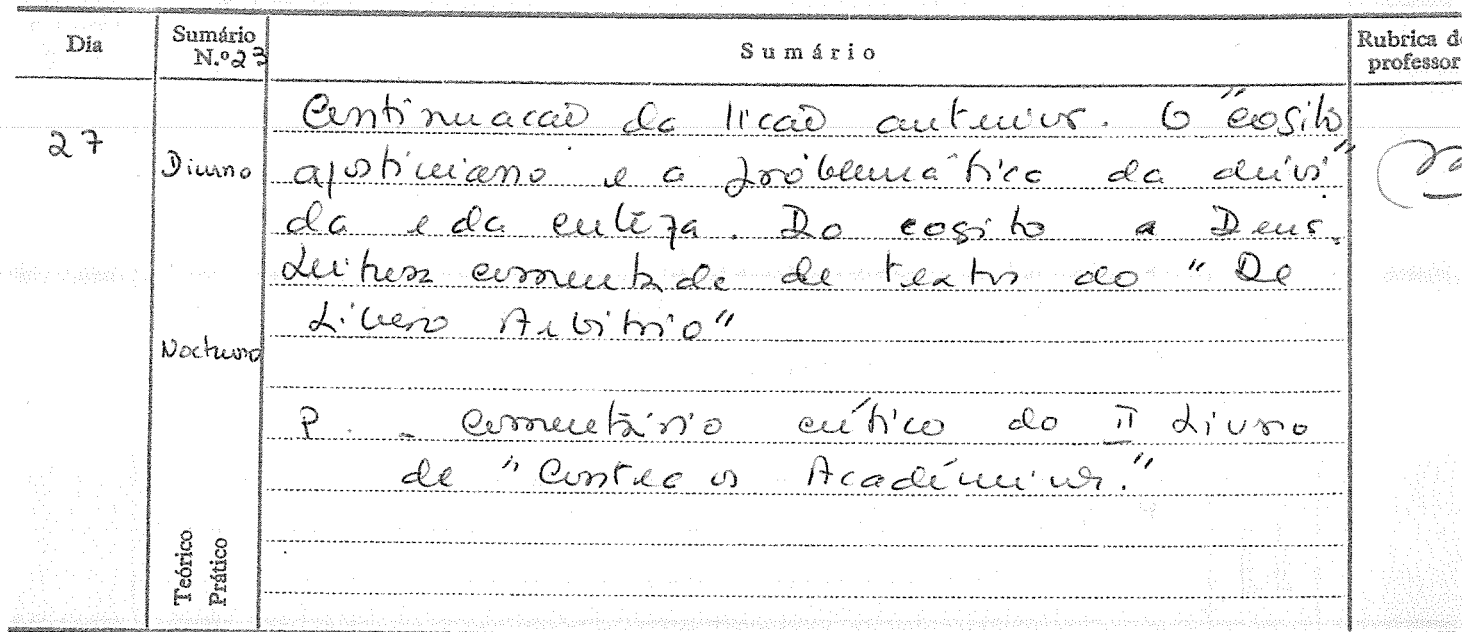 Dia Sumário N.º 23 Sumário Rubrica do professor
27
Diurno
Continuação da lição anterior. O "cogito"
agostiniano e a problemática da dúvi-
da e da certeza. Do cogito a Deus.
Leitura comentada de textos do "De
Libero Arbitrio"
Nocturno
P. - Comentário crítico do II Livro
de "Contra os Académicos."
Teórico
Prático